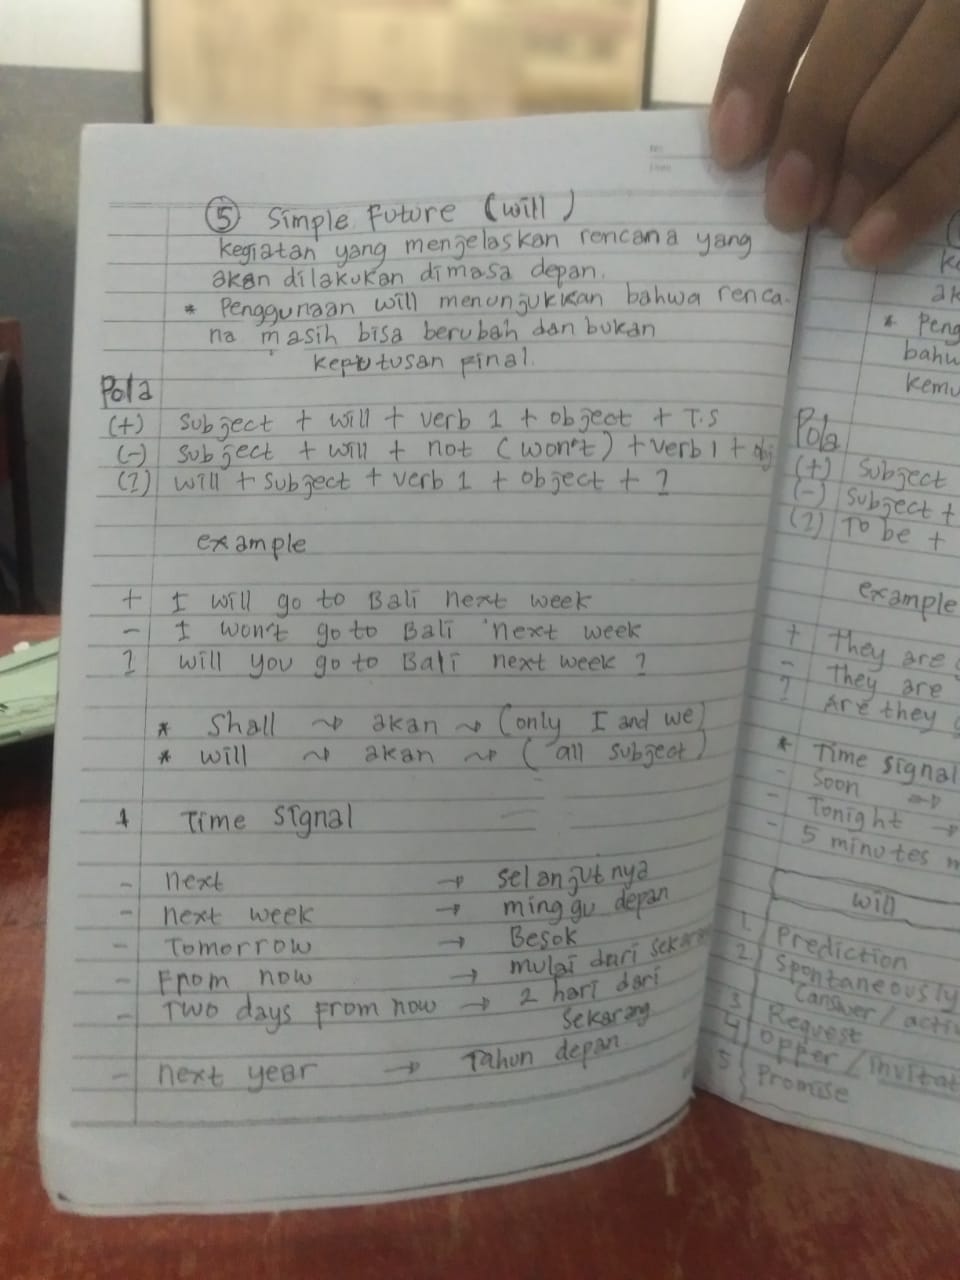 ⑤ Simple Future (will)
kegiatan yang menjelaskan rencana yang
akan dilakukan dimasa depan.
* Penggunaan will menunjukkan bahwa renca-
na masih bisa berubah dan bukan
keputusan final.
Pola
(+) Subject + will + verb 1 + object + T.S
(-) Subject + will + not (won't) + verb 1 + obj
(?) will + subject + verb 1 + object + ?
example
+ I will go to Bali next week
- I won't go to Bali next week
? will you go to Bali next week ?
* Shall ~> akan ~> (only I and we)
* will ~> akan ~> (all subject)
* Time signal
- next → selanjutnya
- next week → minggu depan
- Tomorrow → Besok
- From now → mulai dari sekarang
- Two days from now → 2 hari dari
sekarang
- next year → Tahun depan
* Peng
bahw
kemu
Pola
(+) Subject
(-) Subject +
(?) To be +
example
+ They are
- They are
? Are they
* Time signal
- Soon →
- Tonight →
- 5 minutes
will
1. Prediction
2. Spontaneously
(answer /
3. Request
4. offer / invitat
5. Promise